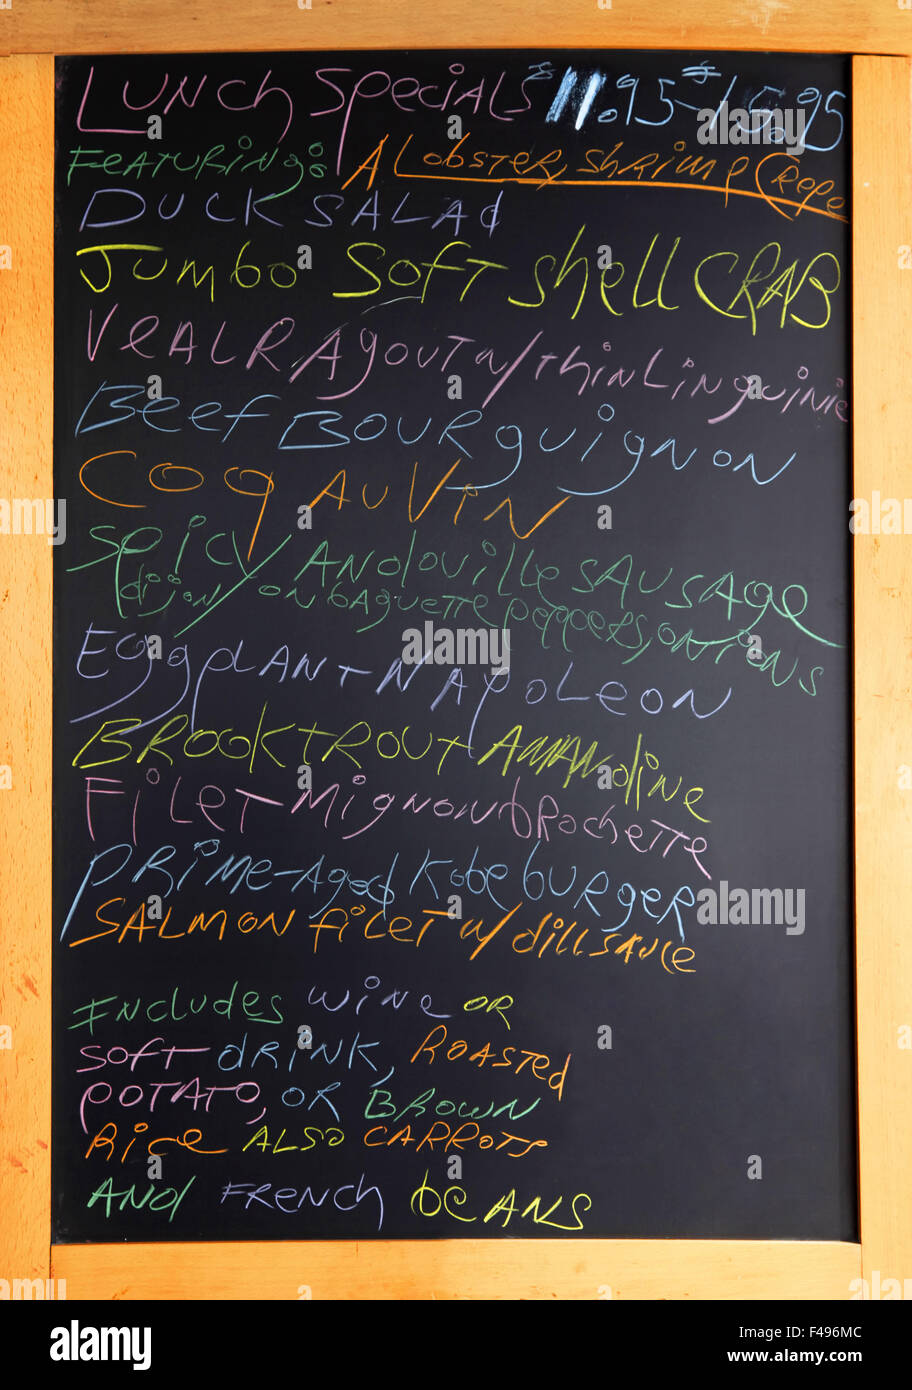 Lunch Specials $11.95-$15.95
Featuring: A Lobster, shrimp Crepe
Duck Salad
Jumbo Soft Shell Crab
Veal Ragout w/thin Linguinie
Beef Bourguignon
Coq Au Vin
Spicy Andouille Sausage
dijon/on baguette peppers, onions
Eggplant Napoleon
Brook trout Amandine
Filet Mignon brochette
Prime-Aged Kobe burger
Salmon filet w/ dill sauce
Includes wine or
soft drink, roasted
potato, or brown
rice also carrots
and french beans
alamy stock photo
F496MC
www.alamy.com